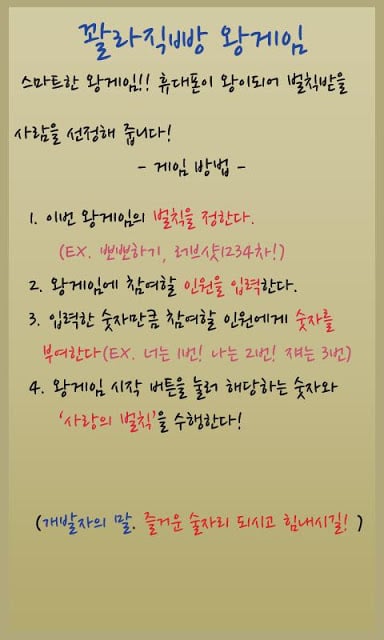 꽐라직빵 왕게임
스마트한 왕게임!! 휴대폰이 왕이되어 벌칙받을
사람을 선정해 줍니다!
- 게임 방법 -
1. 이번 왕게임의 벌칙을 정한다.
(EX. 뽀뽀하기, 러브샷1234차!)
2. 왕게임에 참여할 인원을 입력한다.
3. 입력한 숫자만큼 참여할 인원에게 숫자를
부여한다(EX. 너는 1번! 나는 2번! 쟤는 3번)
4. 왕게임 시작 버튼을 눌러 해당하는 숫자와
'사랑의 벌칙'을 수행한다!
(개발자의 말. 즐거운 술자리 되시고 힘내시길! )